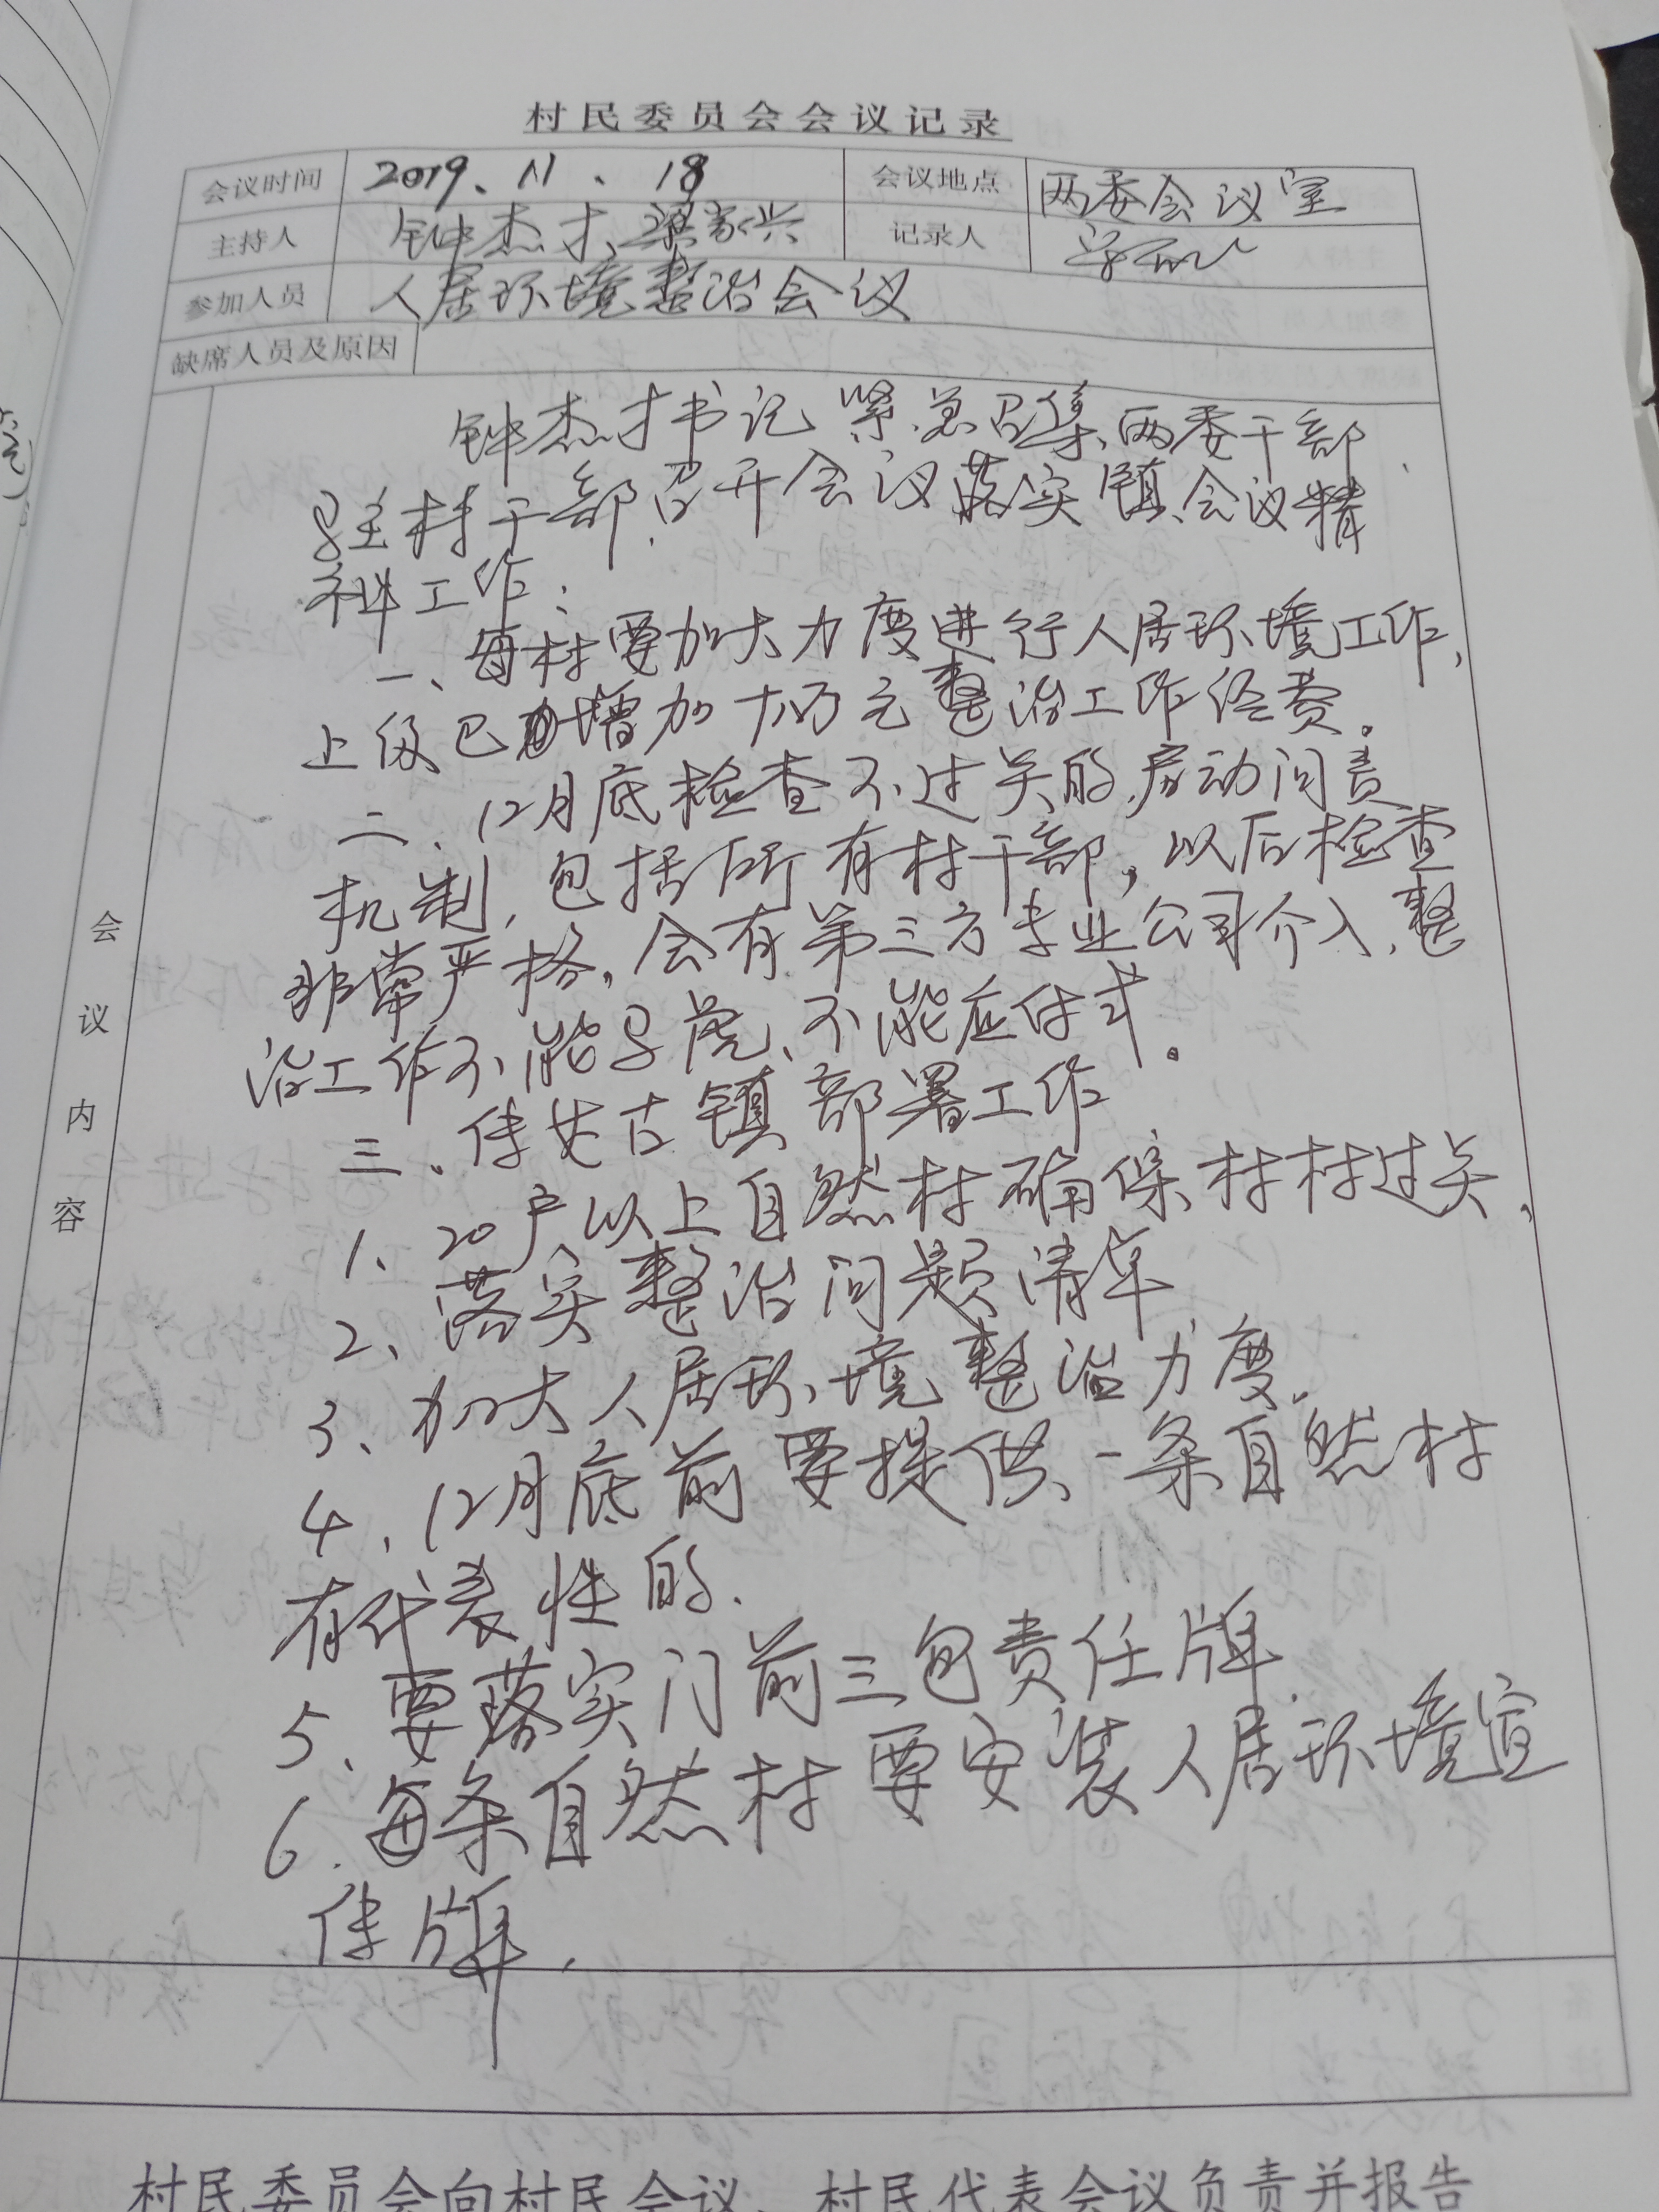 村民委员会会议记录
会议时间 2019、11、18 会议地点 两委会议室
主持人 钟杰才、梁家兴 记录人
参加人员 人居环境整治会议
缺席人员及原因
钟杰才书记紧急召集两委干部、
驻村干部召开会议落实镇会议精
神工作:
一、每村要加大力度进行人居环境工作,
上级已增加十万元整治工作经费。
二、12月底检查不过关的,启动问责
机制,包括所有村干部,以后检查
非常严格,会有第三方专业公司介入,整
治工作不能马虎、不能应付式。
三、传达古镇部署工作
1、20户以上自然村确保村村过关,
2、落实整治问题清单
3、加大人居环境整治力度.
4、12月底前要提供一条自然村
有代表性的.
5、要落实门前三包责任牌.
6.每条自然村要安装人居环境宣
传牌.
会议内容
村民委员会向村民会议、村民代表会议负责并报告